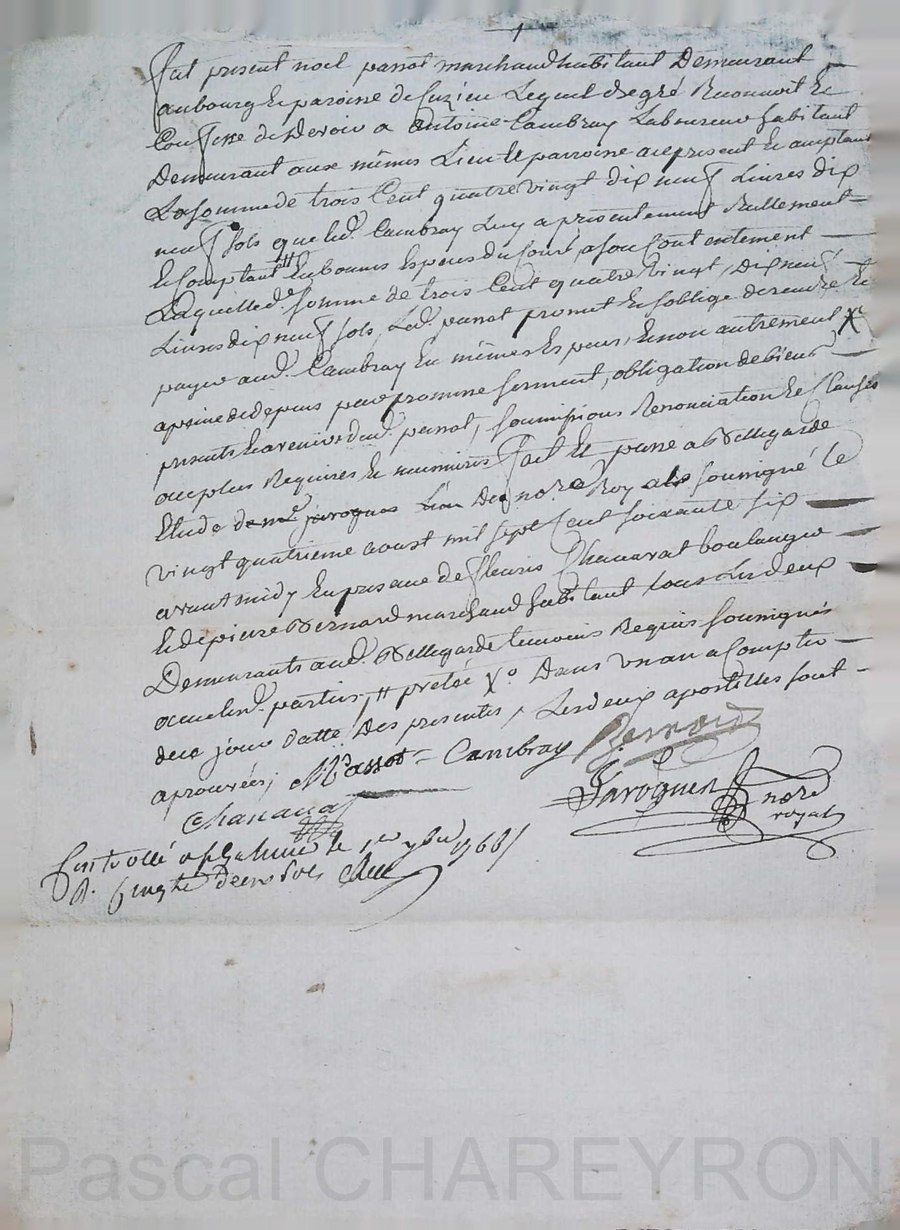 fut present noel passot marchand habitant Demeurant
au bourg et paroisse de Cuzieu Lequel de gré Reconnoit et
Confesse de Devoir a antoine Cambray Laboureur habitant
Demeurant aux mêmes Lieu et parroisse acepsent et aceptant
La somme de trois Cent quatre vingt dix neuf Livres dix
neuf sols que led. Cambray Luy a presentement Reellement
et Comptant # En bonnes Especes du Cours a son Contentement
Laquelle de somme de trois Cent quatre vingt, dix neuf
Livres dix neuf sols, Led. passot promet et s'oblige de rendre et
payer aud. Cambray En mêmes Especes, et non autrement x
a peine de depens par promesse serment, obligation de biens
presents et avenirs dud. passot, soumissions Renonciation et Clauses
au plus Requises et necessaires fait et passé a Bellegarde
Etude de me jaroques L'un Des no.res Roy als soussigné le
vingt quatrieme aoust mil sept Cent soixante six
avant midy En presence de fleuris Chanavat boulanger
et de pierre Bernard marchand habitant tous Les deux
Demeurants aud. Bellegarde temoins Requis soussignés
avec lesd. parties, # prêté x.o Dans un an a Compter
de ce jour datte Des presentes, Les deux apostilles sont
aprouvées; N Passot Cambray Bernard
Chanavat Jaroques nore
royal
Controllé a St galmier le 1er 7bre 1766
R. cinquante deux sols